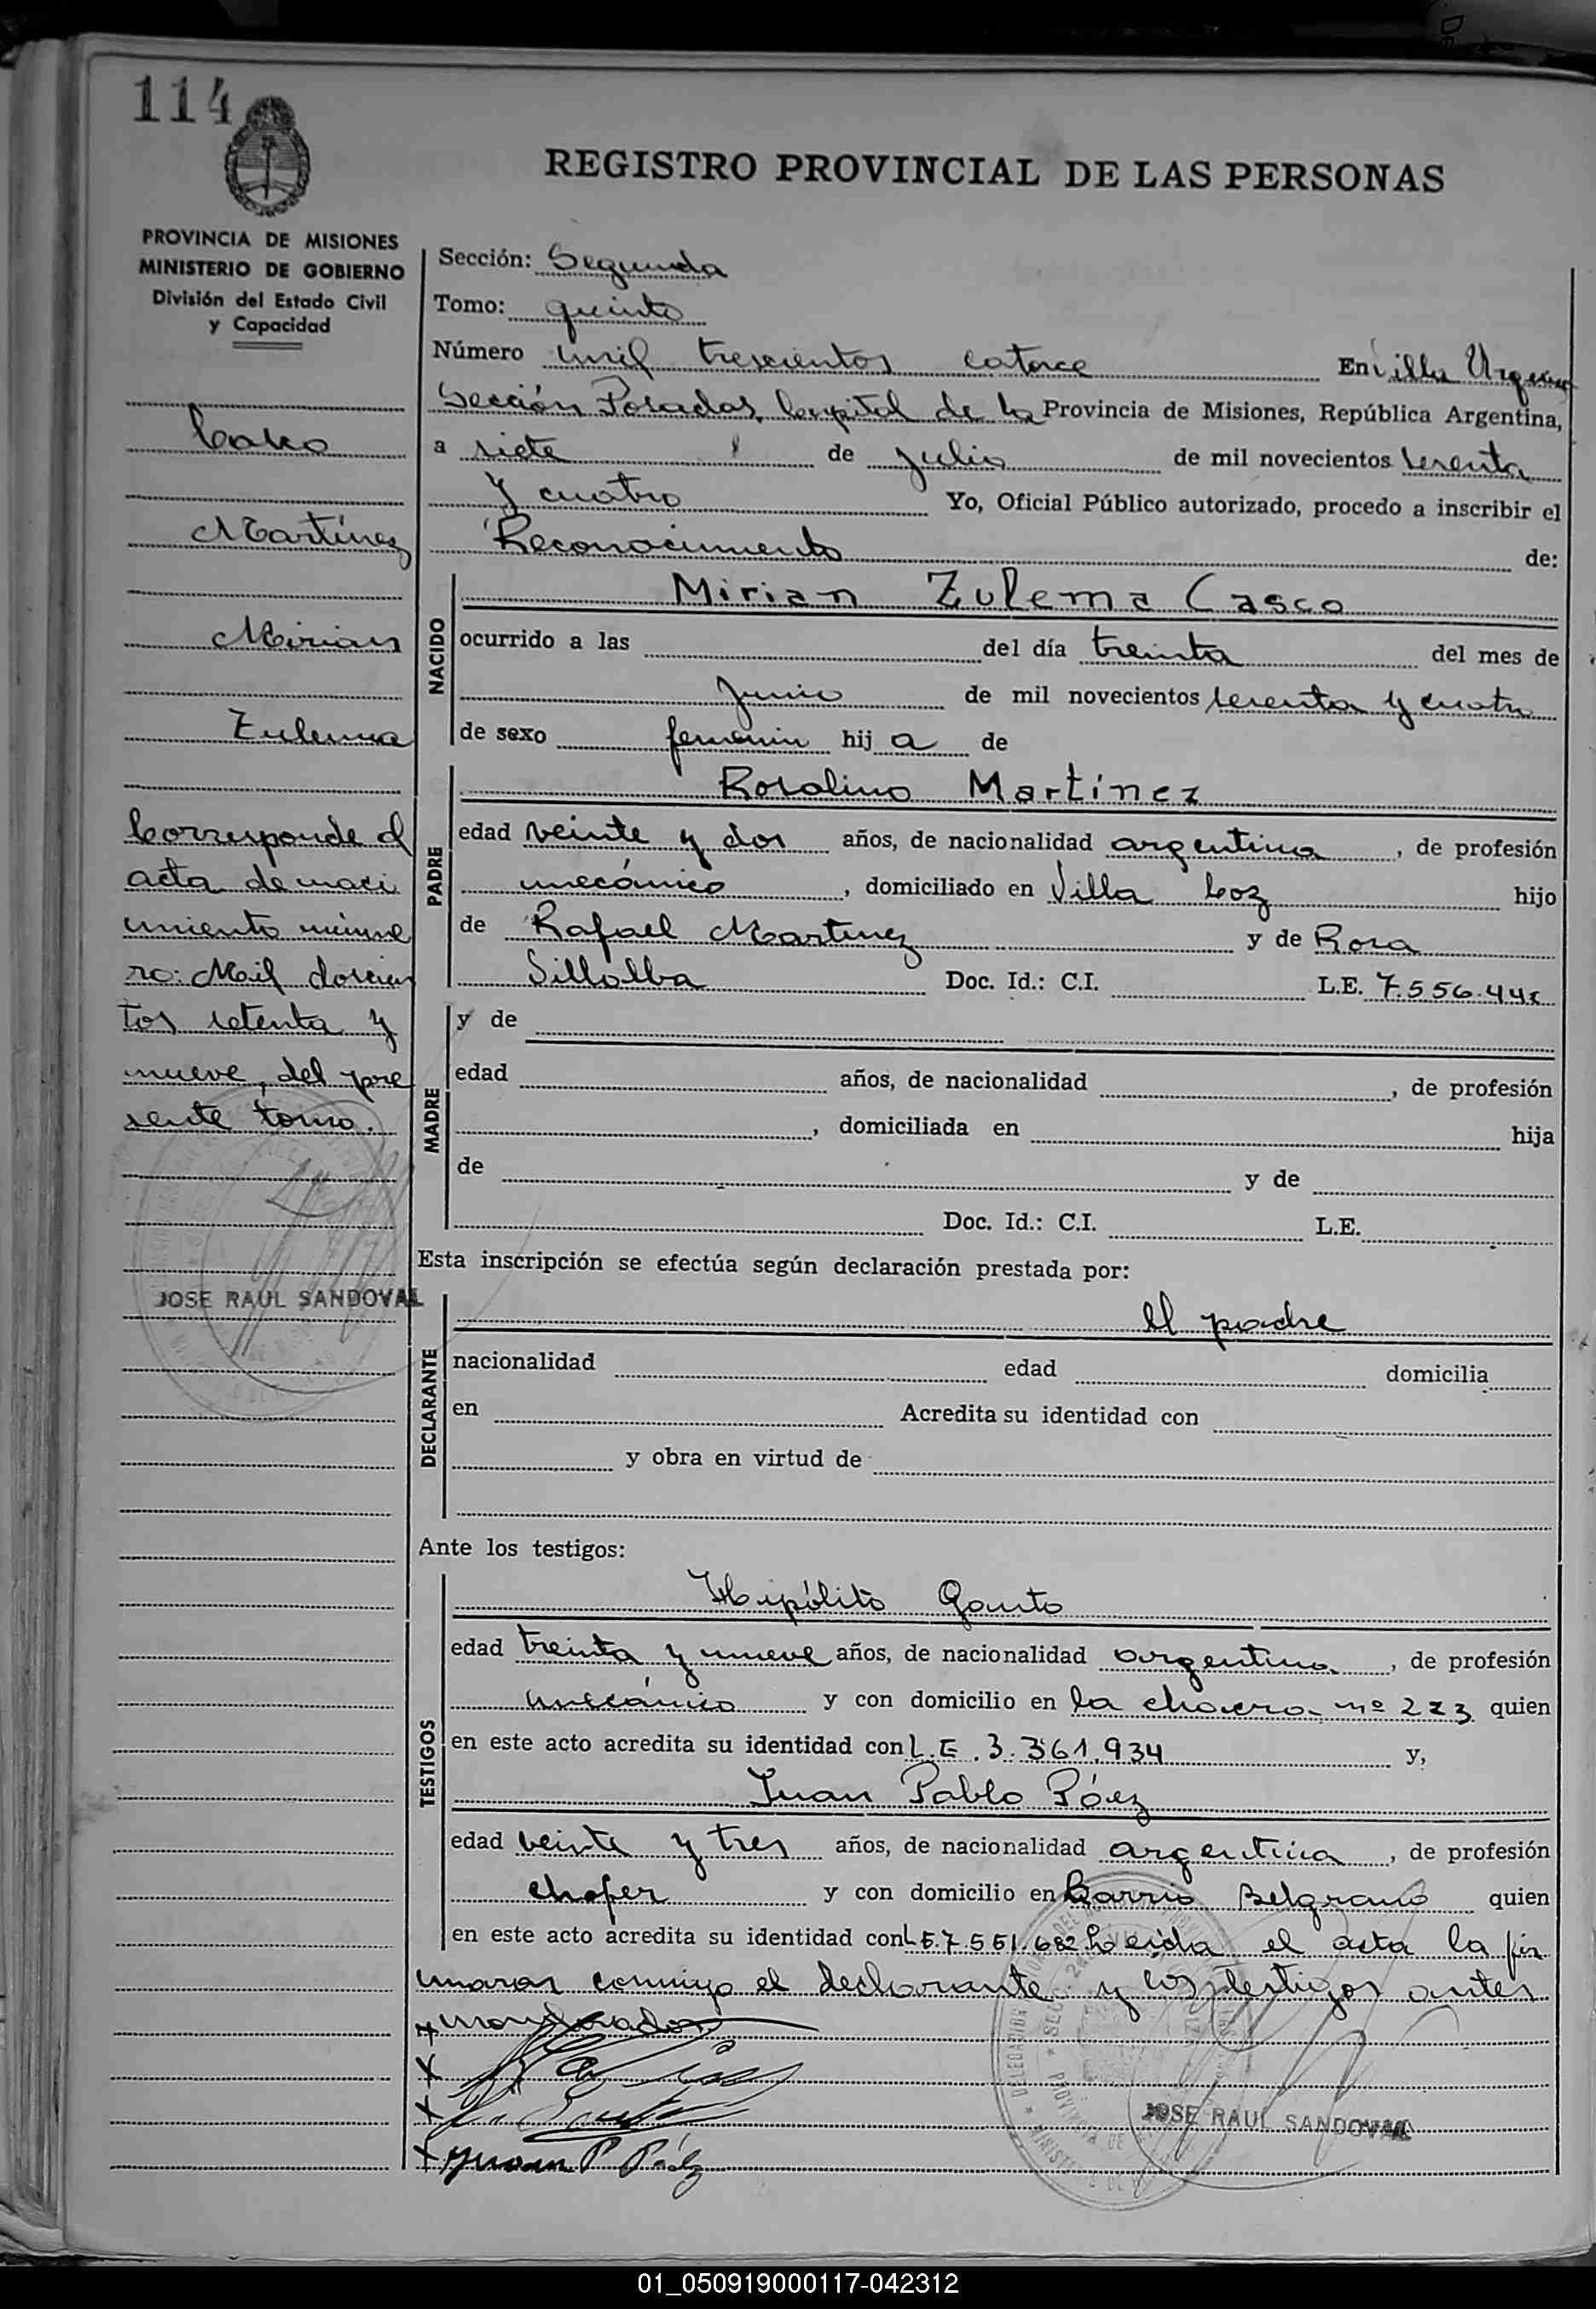 114
REGISTRO PROVINCIAL DE LAS PERSONAS
PROVINCIA DE MISIONES
MINISTERIO DE GOBIERNO
División del Estado Civil
y Capacidad
Casco
Martínez
Mirian
Zulema
Corresponde el
acta de naci
miento núme
ro: Mil doscien
tos setenta y
nueve, del pre
sente tomo.
JOSE RAUL SANDOVAL
Sección: Segunda
Tomo: quinto
Número mil trescientos catorce En villa Urquiza
Sección Posadas, Capital de la Provincia de Misiones, República Argentina,
a siete de julio de mil novecientos sesenta
y cuatro Yo, Oficial Público autorizado, procedo a inscribir el
Reconocimiento de:
NACIDO
Mirian Zulema Casco
ocurrido a las del día treinta del mes de
Junio de mil novecientos sesenta y cuatro
de sexo femenin hij a de
PADRE
Rosalino Martínez
edad veinte y dos años, de nacionalidad argentina, de profesión
mecánico, domiciliado en Villa Coz hijo
de Rafael Martinez y de Rosa
Sillalba Doc. Id.: C.I. L.E. 7.556.44
MADRE
y de
edad años, de nacionalidad , de profesión
, domiciliada en hija
de y de
Doc. Id.: C.I. L.E.
Esta inscripción se efectúa según declaración prestada por:
DECLARANTE
el padre
nacionalidad edad domicilia
en Acredita su identidad con
y obra en virtud de
Ante los testigos:
TESTIGOS
Hipólito Gauto
edad treinta y nueve años, de nacionalidad argentina, de profesión
mecánico y con domicilio en la chacra nº 223 quien
en este acto acredita su identidad con L.E. 3.361.934 y,
Juan Pablo Páez
edad veinte y tres años, de nacionalidad argentina, de profesión
chofer y con domicilio en Barrio Belgrano quien
en este acto acredita su identidad con L E.7.551.682 Leida el acta la fir
maron conmigo el declarante y los testigos antes
x
x
x
x Juan P Páez
JOSE RAUL SANDOVAL
01_050919000117-042312